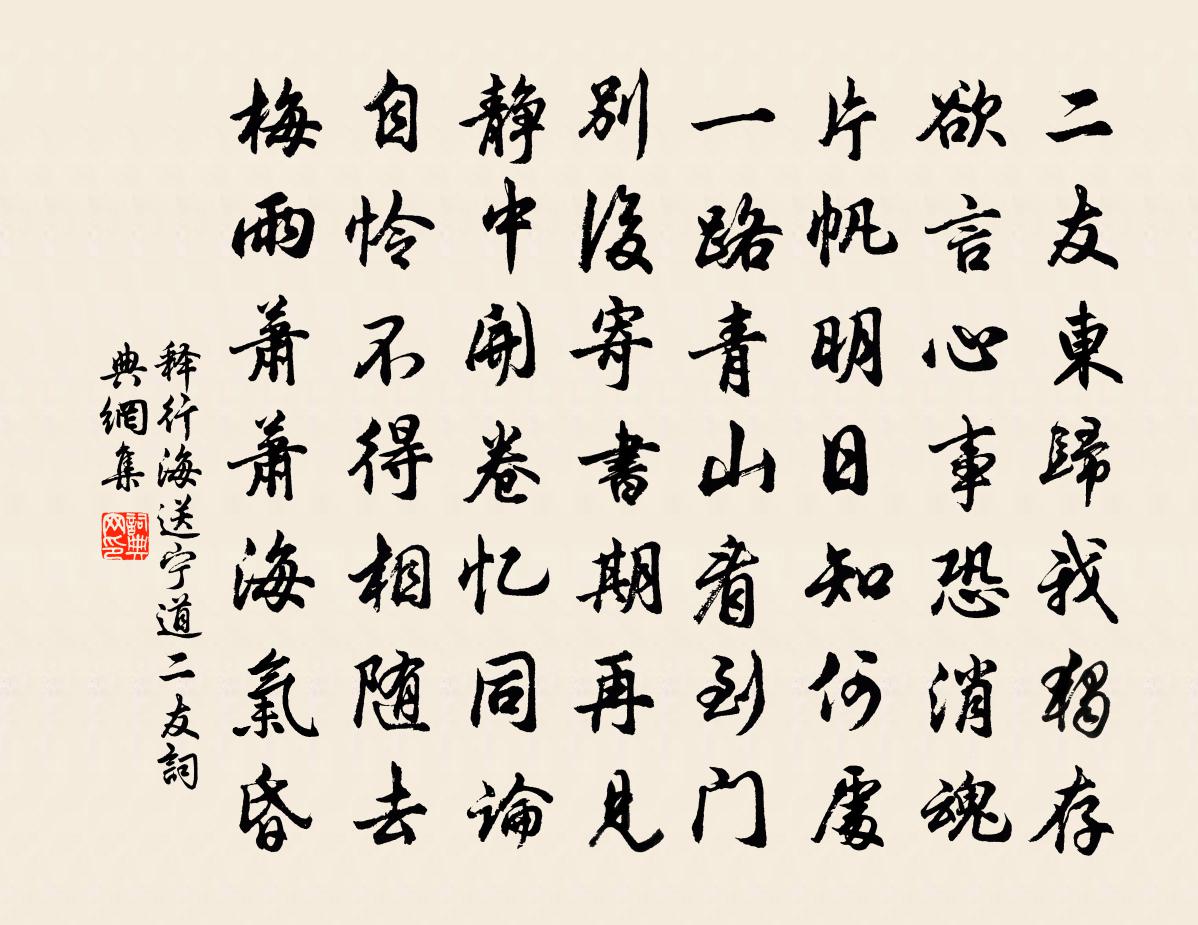 二友東歸我獨存
欲言心事恐消魂
片帆明日知何處
一路青山看到门
別後寄書期再見
靜中開卷忆同論
自怜不得相随去
梅雨蕭蕭海氣昏
释行海送宁道二友詞
典網集
詞典
网印